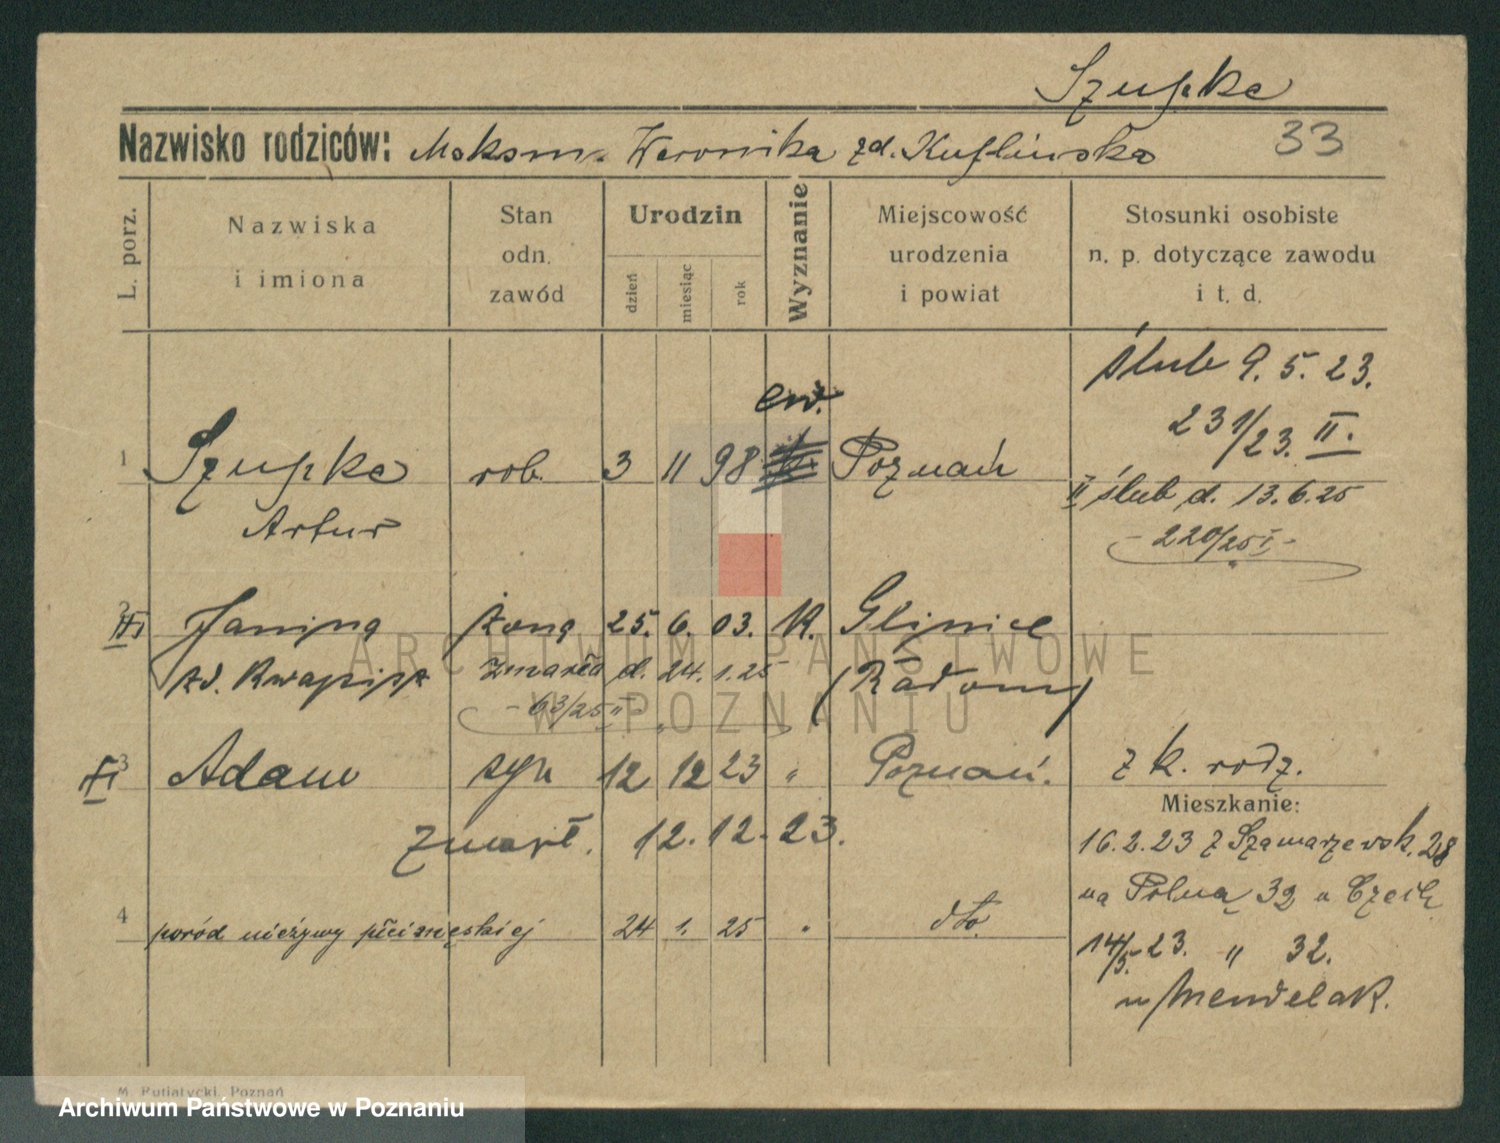 Szupke
Nazwisko rodziców: Maksm. Weronika zd. Kuflińska 33
L. porz.
Nazwiska
i imiona
Stan
odn.
zawód
Urodzin
dzień
miesiąc
rok
Wyznanie
Miejscowość
urodzenia
i powiat
Stosunki osobiste
n. p. dotyczące zawodu
i t. d.
ślub 9. 5. 23.
231/23. II.
ew.
1 Szupke rob. 3 11 98 Poznań
Artur
II ślub d. 13.6.25
- 220/25 I -
2 Janina żona 25. 6. 03. K. Gliniec
zd. zmarła d. 24. 1. 25 (Radom)
- 63/25 II -
3 Adam syn 12 12 23 " Poznań. z k. rodz.
zmarł. 12. 12. 23.
Mieszkanie:
16.2.23 z Szamarzewsk. 28
na Polną 32 u
4 poród nieżywy płci męskiej 24 1. 25 " dto.
14/5. 23. " 32.
u Mendelak.
M. Putiatycki, Poznań
ARCHIWUM PAŃSTWOWE
W POZNANIU
Archiwum Państwowe w Poznaniu